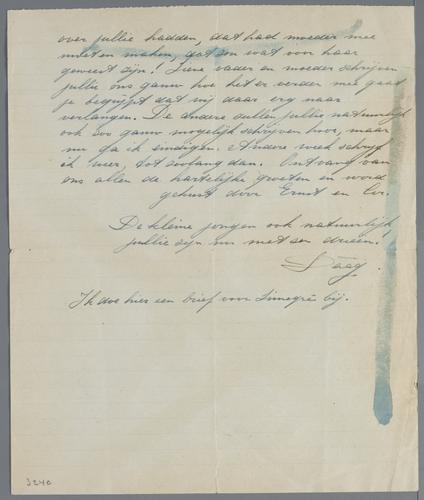 over jullie hadden, dat had moeder mee
moeten maken, dat zou wat voor haar
geweest zijn! Lieve vader en moeder schrijven
jullie ons gauw hoe het er verder mee gaat
je begrijpt dat wij daar erg naar
verlangen. De andere zullen jullie natuurlijk
ook zoo gauw mogelijk schrijven hoor, maar
nu ga ik eindigen. Andere week schrijf
ik weer, tot zoolang dan. Ontvang van
ons allen de hartelijke groeten en word
gekust door Ernst en Cor.
De kleine jongen ook natuurlijk,
jullie zijn nu met z'n drieën.
Daag.
Ik doe hier een brief voor bij.